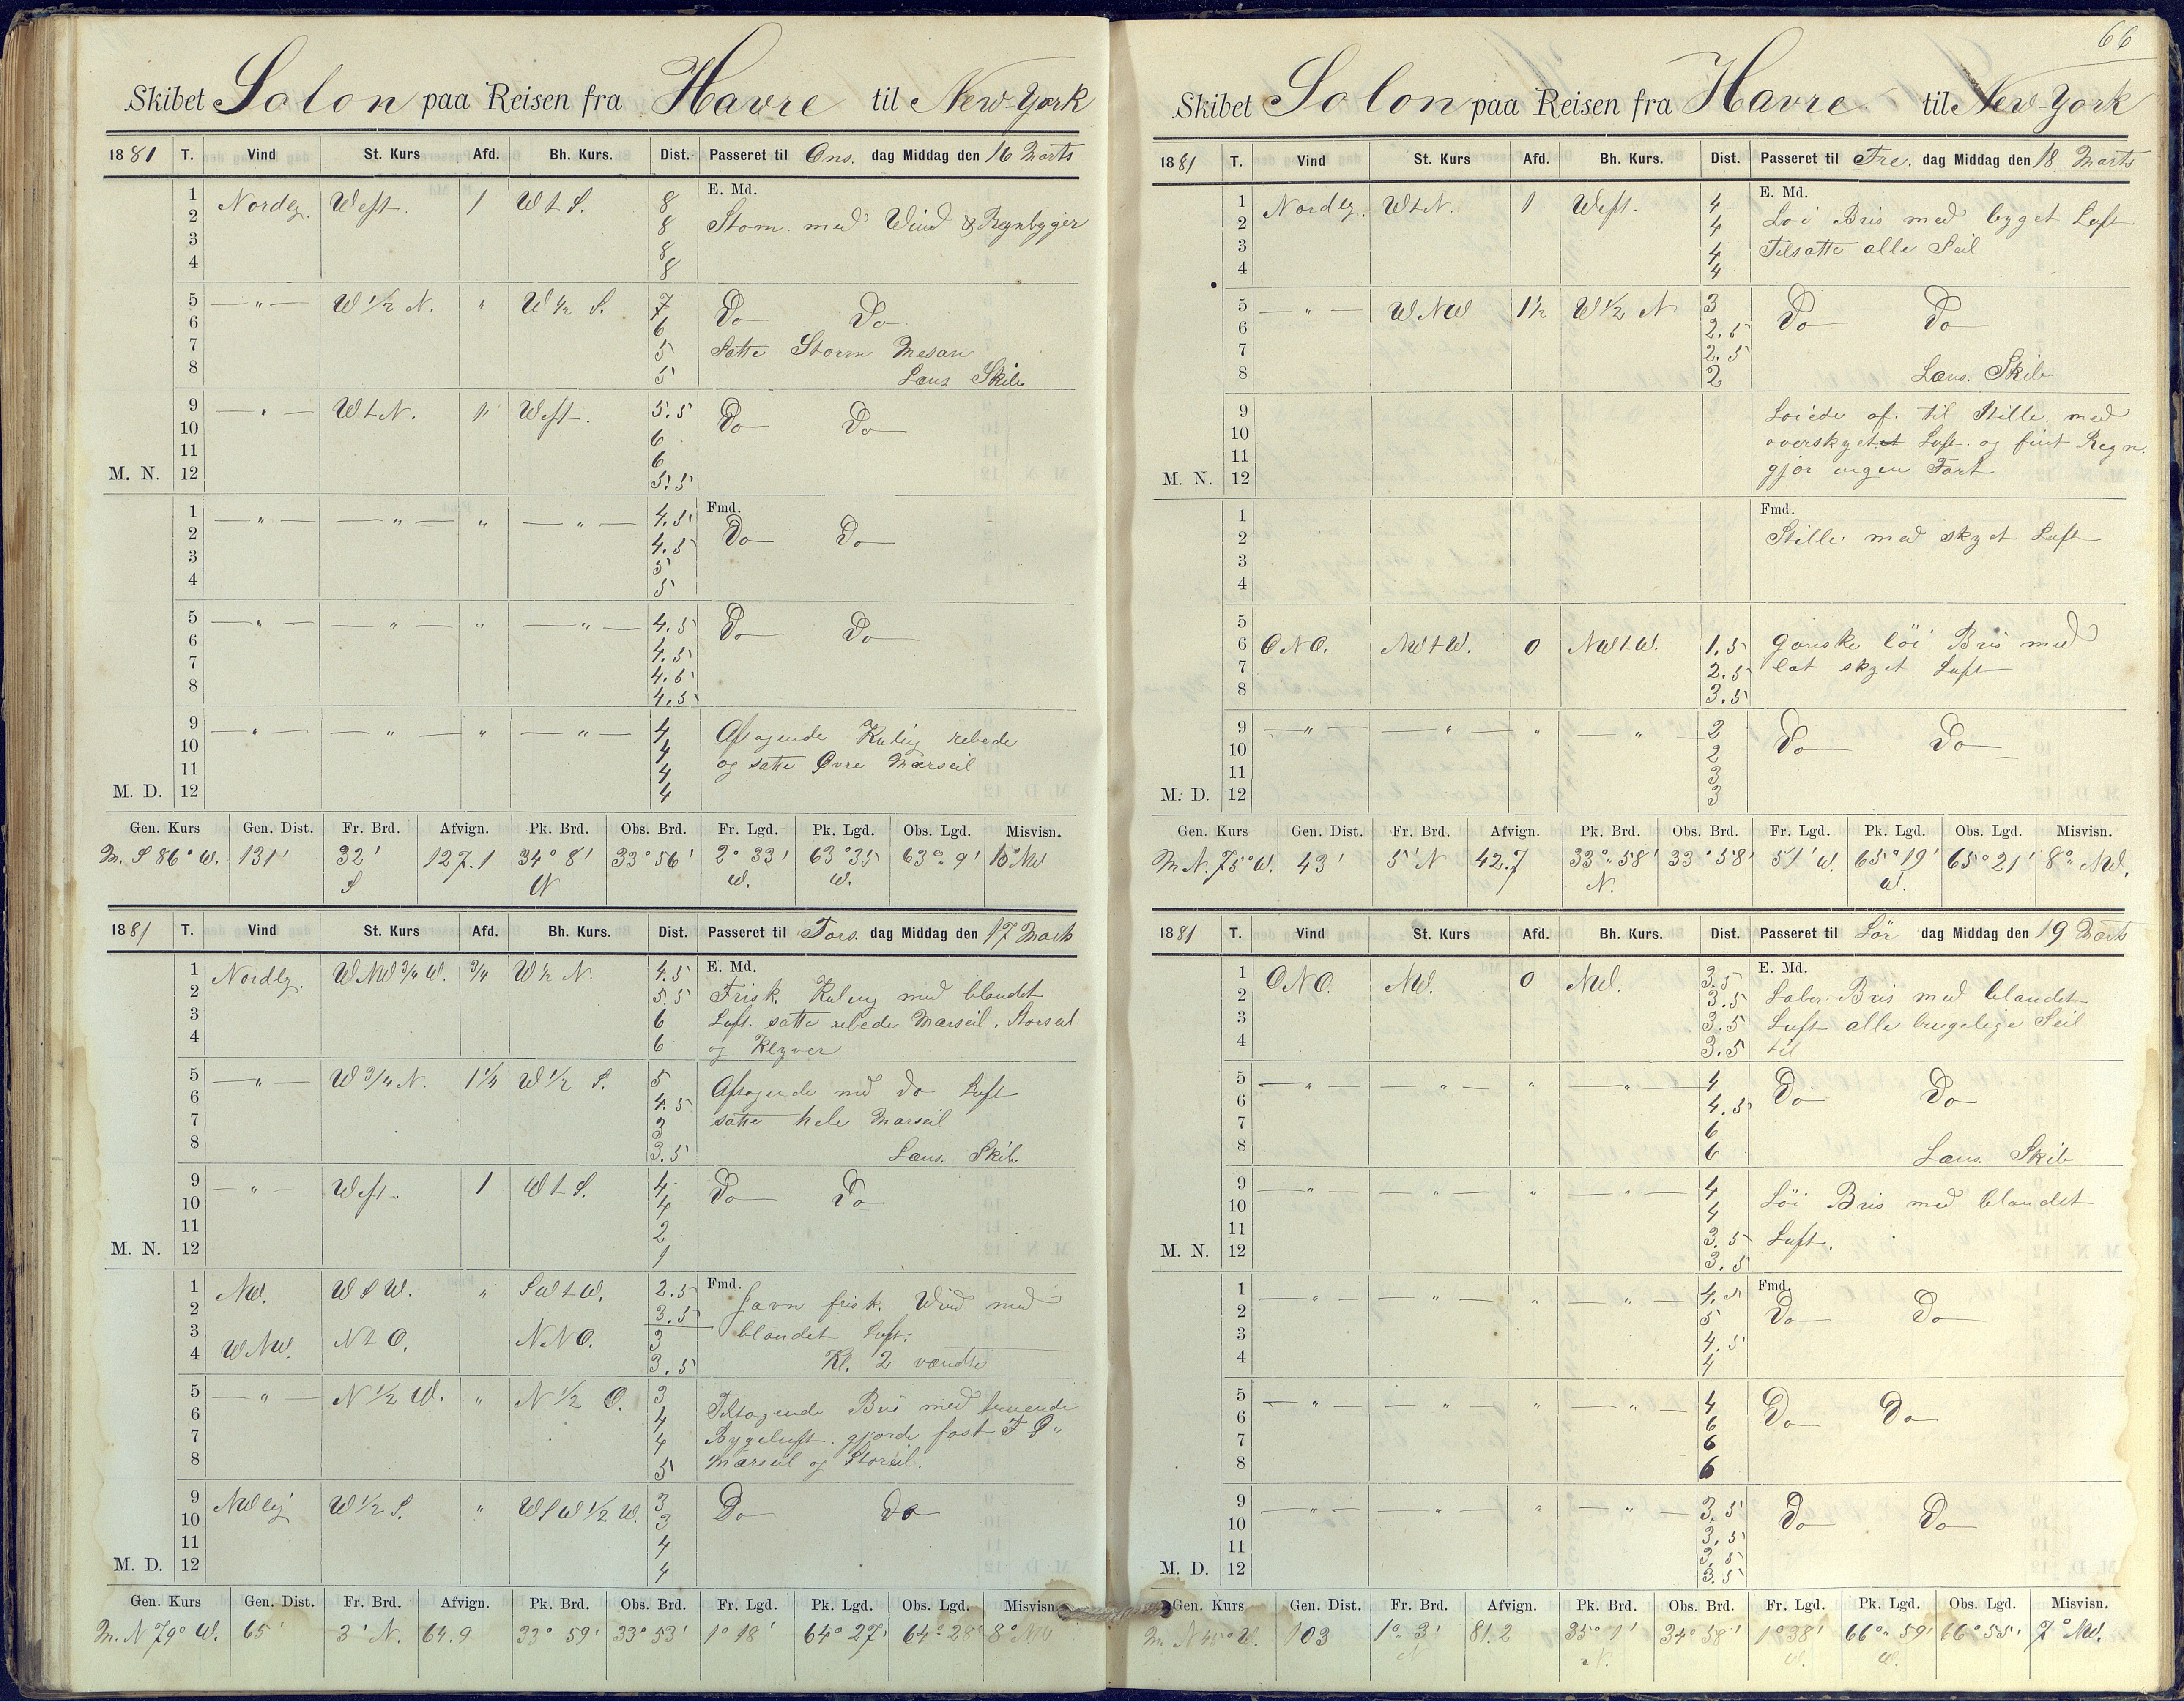 Skibet Solon paa Reisen fra Havre til New-York
1881 T. Vind St. Kurs Afd. Bh. Kurs. Dist. Passeret til Ons. dag Middag den 16 Marts
1 Nordlg. West. 1 W t S. 8 E. Md.
2 8 Storm med Wind & Regnbyger
3 8
4 8
5 — " — W 1/2 N. " W 1/2 S. 7 Do Do
6 6
7 5 Satte Storm Mesan
8 5 Læns Skib
9 — " — W t N. 1 West. 5.5 Do Do
10 6
11 6
M. N. 12 5.5
1 — " — — " — " — " — 4.5 Fmd.
2 4.5 Do Do
3 5
4 5
5 — " — — " — " — " — 4.5 Do Do
6 4.5
7 4.5
8 4.5
9 — " — — " — " — " — 4 Aftagende Kuling rebede
10 4
11 4 og satte Øvre Mærseil
M. D. 12 4
Gen. Kurs Gen. Dist. Fr. Brd. Afvign. Pk. Brd. Obs. Brd. Fr. Lgd. Pk. Lgd. Obs. Lgd. Misvisn.
M. S 86° W. 131' 32' 127.1 34° 8' 33° 56' 2° 33' 63° 35 63° 9' 10° NW
S N W. W.
1881 T. Vind St. Kurs Afd. Bh. Kurs. Dist. Passeret til Tors. dag Middag den 17 Marts
1 Nordlg. WNW 3/4 W. 3/4 W 1/2 N. 4.5 E. Md.
2 5.5 Frisk Kuling med blandet
3 6 Luft. satte rebede Mærseil. Storseil
4 6 og Klyver
5 — " — W 3/4 N. 1 1/4 W 1/2 S. 5 Aftagende med do Luft
6 4.5
7 3 satte hele Mærseil
8 3.5 Læns. Skib
9 — " — West. 1 W t S. 4 Do Do
10 4
11 2
M. N. 12 1
1 NW. W S W. " SW t W. 2.5 Fmd. Javn frisk. Wind med
2 3.5
3 WNW. N t O. NNO. 3 blandet Luft.
4 3.5 Kl. 2 vendte
5 — " — N 1/2 W. " N 1/2 O. 3 Tiltagende Bris med truende
6 4
7 4 Bygeluft. gjorde fast F Ø.
8 5 Mærseil og Storseil.
9 NWlig W 1/2 S. " WSW 1/2 W. 3 Do Do
10 3
11 4
M. D. 12 4
Gen. Kurs Gen. Dist. Fr. Brd. Afvign. Pk. Brd. Obs. Brd. Fr. Lgd. Pk. Lgd. Obs. Lgd. Misvisn.
M. N 79° W. 65' 3' N. 64.9 33° 59' 33° 53' 1° 18' 64° 27' 64° 28' 8° NW
66
Skibet Solon paa Reisen fra Havre til New-York
1881 T. Vind St. Kurs Afd. Bh. Kurs. Dist. Passeret til Fre. dag Middag den 18 Marts
1 Nordlg. W t N. 1 West. 4 E. Md.
2 4 Löi Bris med byget Luft
3 4 Tilsatte alle Seil
4 4
5 — " — WNW 1 1/2 W 1/2 N 3 Do Do
6 2.5
7 2.5
8 2 Læns. Skib
9 Löiede af til Stille. med
10 overskyet Luft. og fint Regn.
11 gjør ingen Fart
M. N. 12
1 Fmd.
2 Stille med skyet Luft
3
4
5
6 ONO. NW t W. 0 NW t W. 1.5 Ganske löi Bris med
7 2.5 let skyet Luft
8 3.5
9 — " — — " — " — " — 2 Do Do
10 2
11 3
M. D. 12 3
Gen. Kurs Gen. Dist. Fr. Brd. Afvign. Pk. Brd. Obs. Brd. Fr. Lgd. Pk. Lgd. Obs. Lgd. Misvisn.
M. N. 75° W. 43' 5' N 42.7 33° 58' 33° 58' 51' W. 65° 19' 65° 21' 8° NW.
N. W.
1881 T. Vind St. Kurs Afd. Bh. Kurs. Dist. Passeret til Lör dag Middag den 19 Marts
1 ONO. NW. 0 NW. 3.5 E. Md.
2 3.5 Laber Bris med blandet
3 3.5 Luft alle brugelige Seil
4 3.5 til
5 — " — — " — " — " — 4 Do Do
6 4.5
7 6
8 6 Læns. Skib
9 — " — — " — " — " — 4 Löi Bris med blandet
10 4
11 3.5 Luft.
M. N. 12 3.5
1 — " — — " — " — " — 4.5 Fmd.
2 5 Do Do
3 4.5
4 4
5 — " — — " — " — " — 4 Do Do
6 6
7 6
8 6
9 — " — — " — " — " — 3.5 Do Do
10 3.5
11 3.5
M. D. 12 3.5
Gen. Kurs Gen. Dist. Fr. Brd. Afvign. Pk. Brd. Obs. Brd. Fr. Lgd. Pk. Lgd. Obs. Lgd. Misvisn.
M. N W. 103 1° 3' 81.2 35° 1' 34° 58' 1° 38' 66° 59' 66° 55' 7° NW.
N N. W. W.